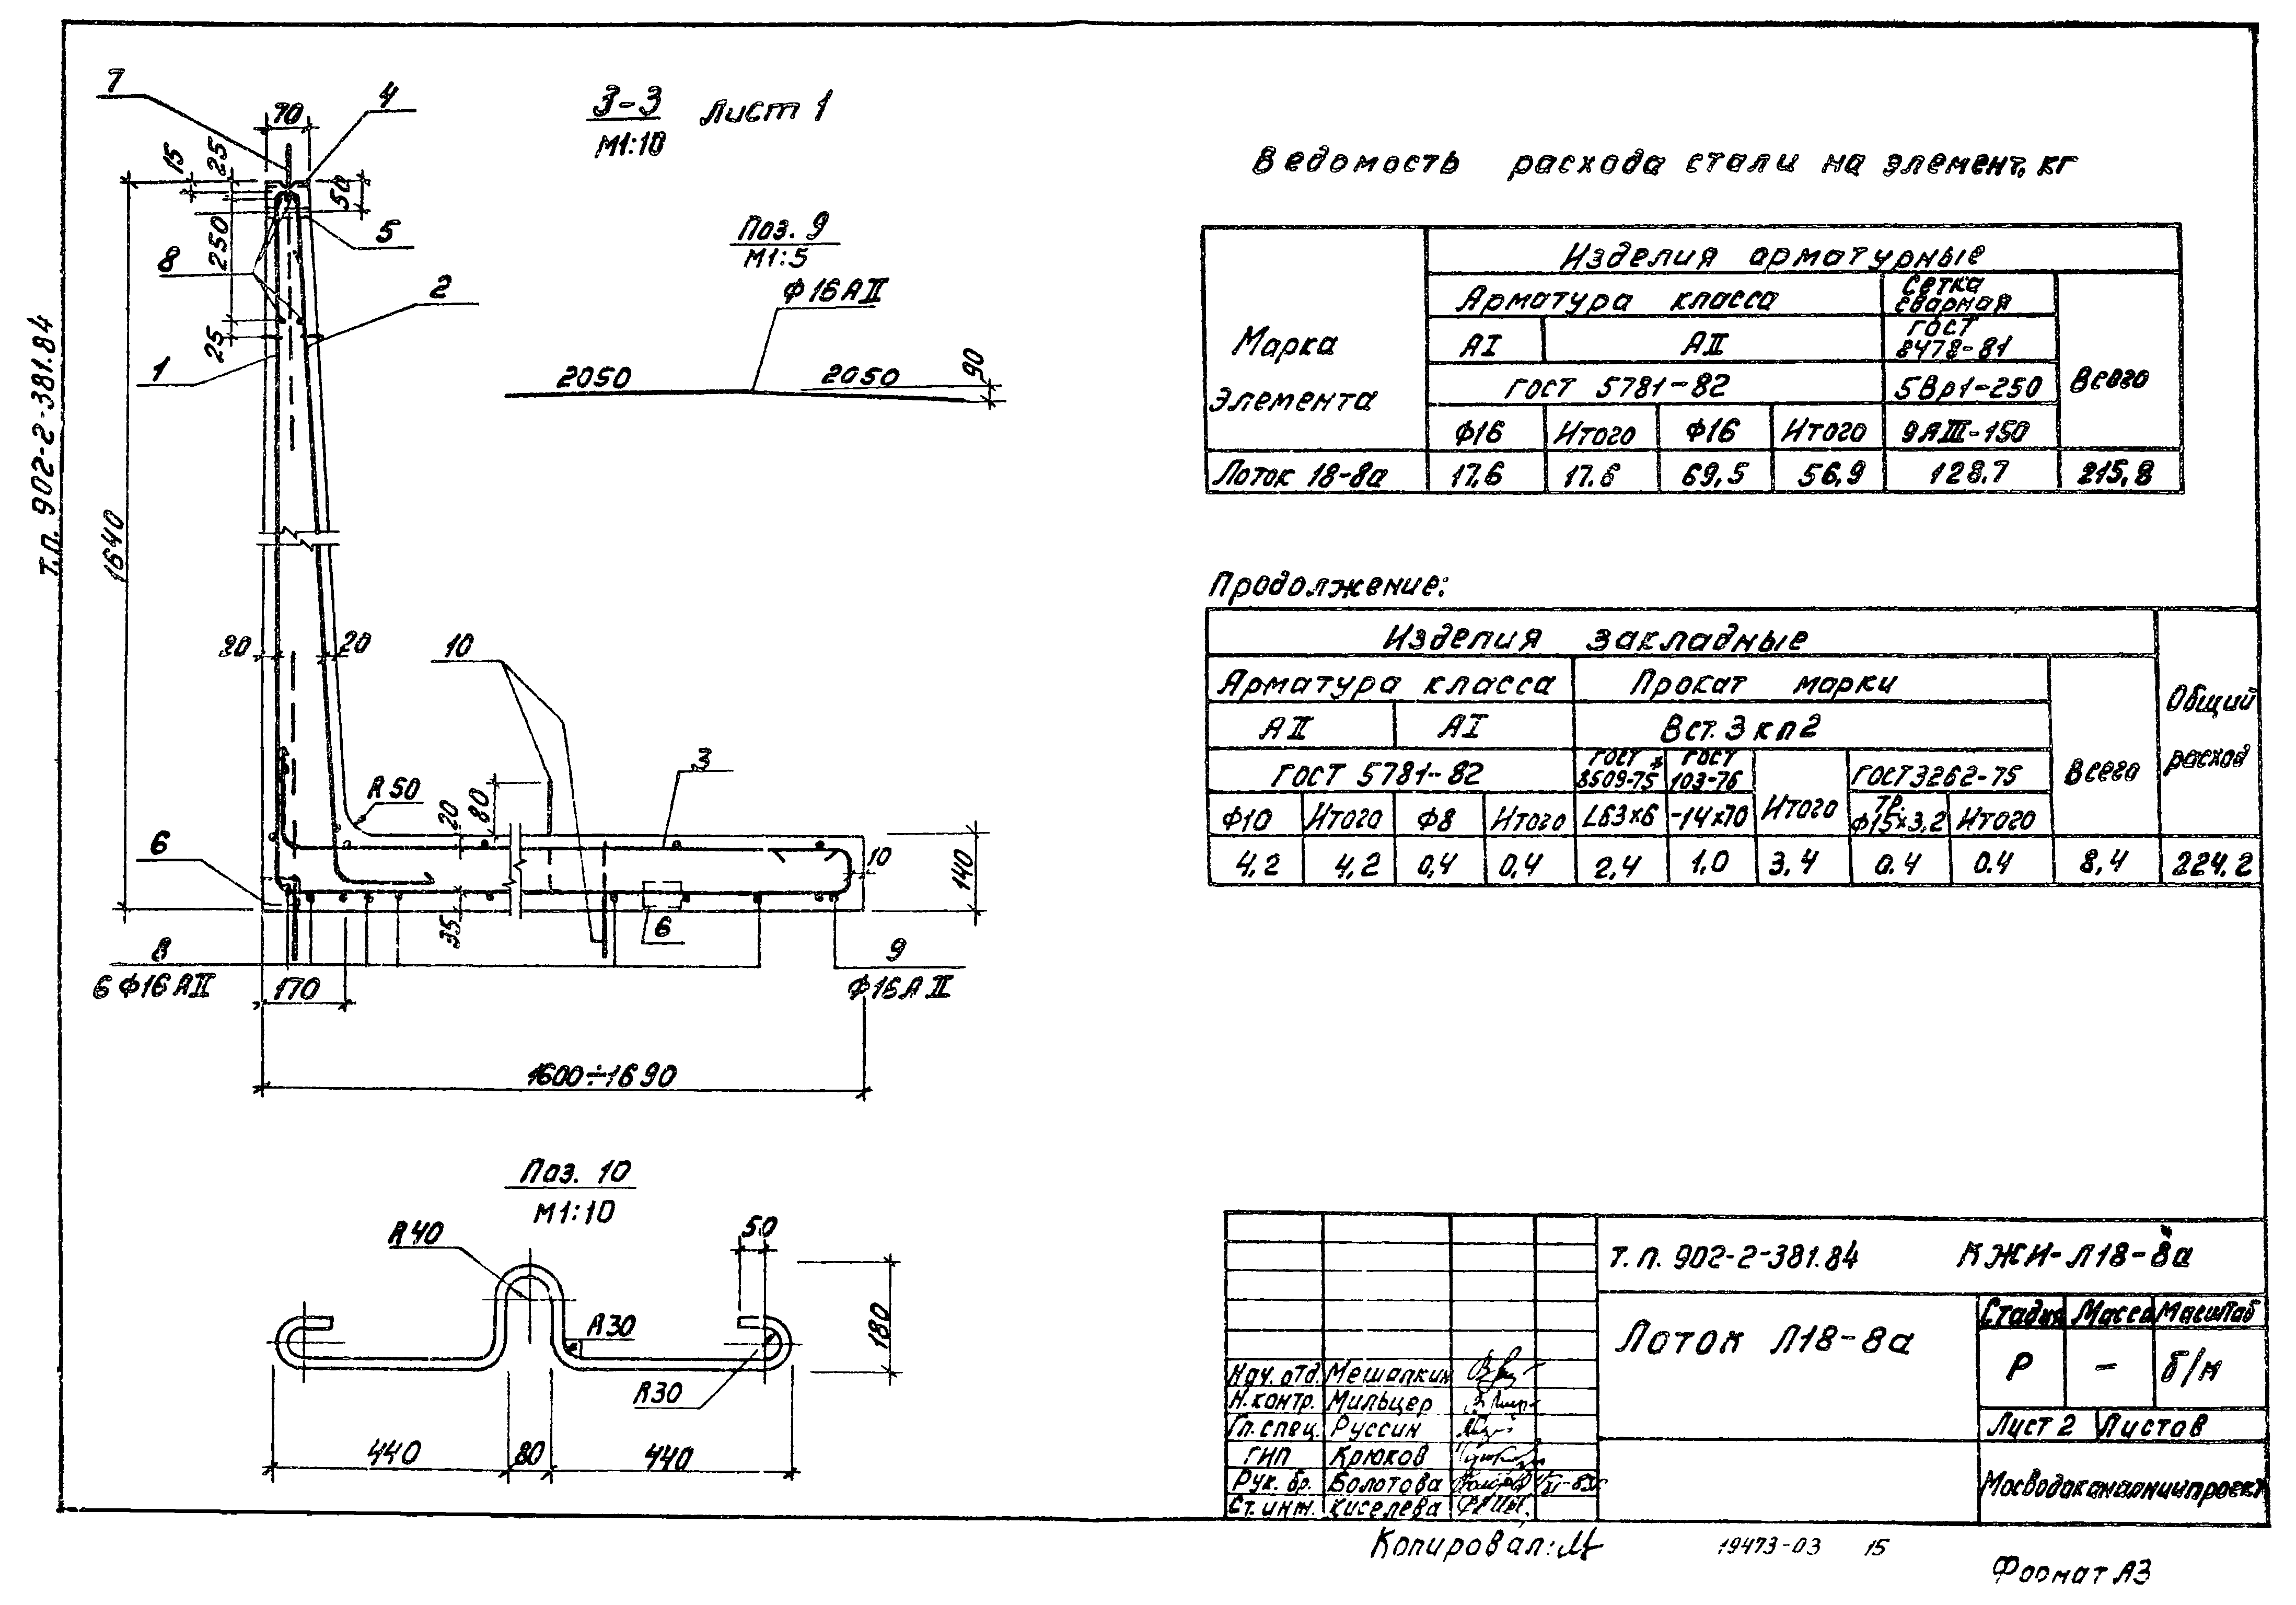 Т.П. 902-2-381.84
3-3 Лист 1
М1:10
7
4
70
15
25
50
250
5
8
2
25
1
1640
20
20
10
R50
80
20
3
6
10
140
35
6
8
9
6 Ф16 АII
170
Ф16 А II
1600÷1690
Поз. 9
М1:5
Ф16АII
2050
2050
90
Поз. 10
М1:10
R40
50
R30
180
R30
440
80
440
Ведомость расхода стали на элемент, кг
Марка элемента
Изделия арматурные
Арматура класса
Сетка сварная
АI
АII
ГОСТ 8478-81
Всего
ГОСТ 5781-82
5Вр1-250
Ф16
Итого
Ф16
Итого
9АIII-150
Лоток 18-8а
17,6
17.6
69,5
56,9
128,7
215,8
Продолжение:
Изделия закладные
Арматура класса
Прокат марки
Общий расход
АII
АI
Вст.3кп2
ГОСТ 5781-82
ГОСТ* 8509-75
ГОСТ 103-76
Итого
ГОСТ3262-75
Всего
Ф10
Итого
Ф8
Итого
L63х6
-14х70
Тр. Ф15х3,2
Итого
4,2
4,2
0,4
0,4
2,4
1,0
3,4
0.4
0.4
8,4
224,2
Т. П. 902-2-381.84 КЖИ-Л18-8а
Лоток Л18-8а
Стадия
Масса
Масштаб
Р
-
б/м
Лист 2
Листов
Мосводоканалниипроект
Нач. отд. Мешалкин
Н.контр. Мильцер
Гл. спец. Руссин
ГИП Крюков
Рук. бр. Болотова
Ст. инж. Киселева
Копировал:
19473-03 15
Формат А3